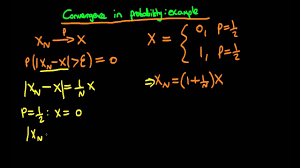 Convergence in probability: example
X_N →^P X
P(|X_N-X|>ε) = 0
|X_N-X| = 1/N X
P=1/2 : X = 0
|X_N
X = { 0, P=1/2
1, P=1/2
⇒X_N = (1+1/N)X